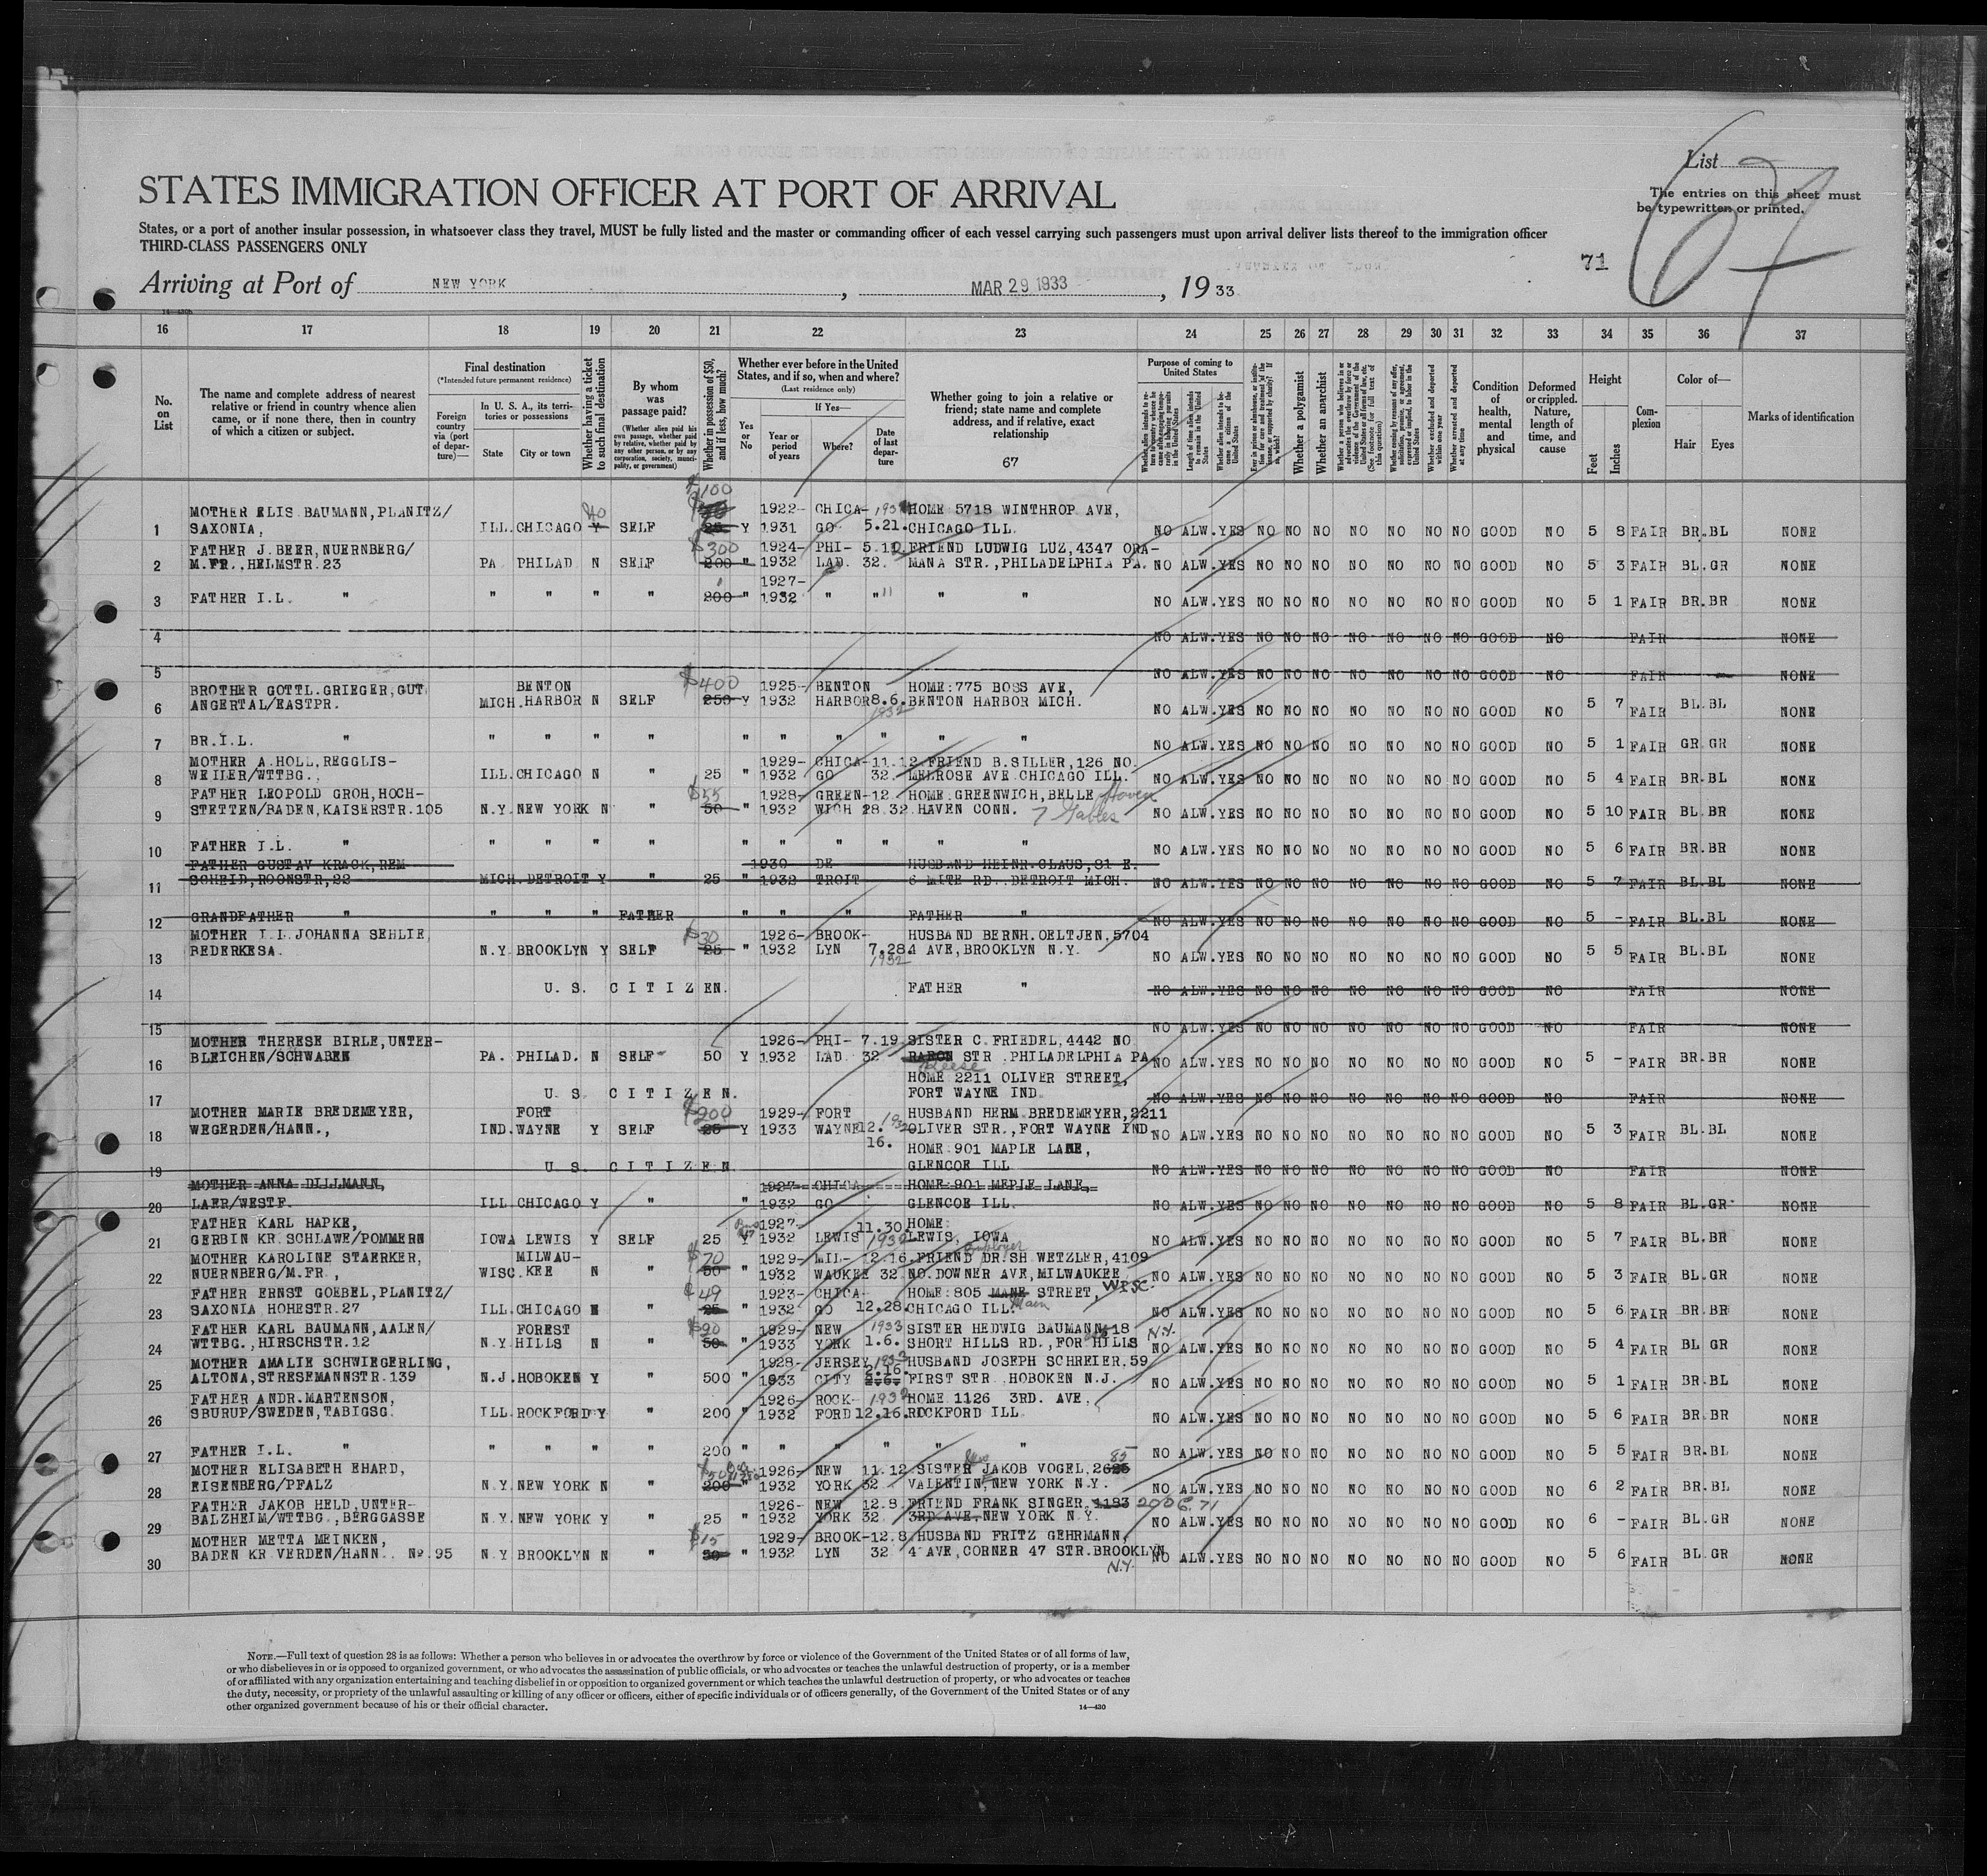 List
67
The entries on this sheet must
be typewritten or printed.
STATES IMMIGRATION OFFICER AT PORT OF ARRIVAL
States, or a port of another insular possession, in whatsoever class they travel, MUST be fully listed and the master or commanding officer of each vessel carrying such passengers must upon arrival deliver lists thereof to the immigration officer
THIRD-CLASS PASSENGERS ONLY
71
Arriving at Port of NEW YORK, MAR 29 1933, 19 33
16 17 18 19 20 21 22 23 24 25 26 27 28 29 30 31 32 33 34 35 36 37
No. on List
The name and complete address of nearest relative or friend in country whence alien came, or if none there, then in country of which a citizen or subject.
Final destination
(*Intended future permanent residence)
Foreign country via (port of departure)—
In U. S. A., its territories or possessions
State
City or town
Whether having a ticket to such final destination
By whom was passage paid?
(Whether alien paid his own passage, whether paid by relative, whether paid by any other person, or by any corporation, society, municipality, or government)
Whether in possession of $50, and if less, how much?
Whether ever before in the United States, and if so, when and where?
(Last residence only)
Yes or No
If Yes—
Year or period of years
Where?
Date of last departure
Whether going to join a relative or friend; state name and complete address, and if relative, exact relationship
67
Purpose of coming to United States
Length of time alien intends to remain in the United States
Whether alien intends to become a citizen of the United States
Whether a polygamist
Whether an anarchist
Whether excluded and deported within one year
Whether arrested and deported at any time
Condition of health, mental and physical
Deformed or crippled. Nature, length of time, and cause
Height
Feet
Inches
Complexion
Color of—
Hair
Eyes
Marks of identification
$100
MOTHER ELIS BAUMANN, PLANITZ/ 1922- CHICA- HOME 5718 WINTHROP AVE,
1 SAXONIA, ILL. CHICAGO Y SELF 25 Y 1931 GO 5.21. CHICAGO ILL. NO ALW. YES NO NO NO NO NO NO NO GOOD NO 5 8 FAIR BR. BL NONE
FATHER J. BEER, NUERNBERG/ $300 1924- PHI- FRIEND LUDWIG LUZ, 4347 ORA-
2 M.FR., HELMSTR. 23 PA PHILAD N SELF 200 " 1932 LAD. 32. MANA STR., PHILADELPHIA PA. NO ALW. YES NO NO NO NO NO NO NO GOOD NO 5 3 FAIR BL. GR NONE
1927-
3 FATHER I.L. " " " " " 200 " 1932 " " " " NO ALW. YES NO NO NO NO NO NO NO GOOD NO 5 1 FAIR BR. BR NONE
4 NO ALW. YES NO NO NO NO NO NO NO GOOD NO FAIR NONE
5 NO ALW. YES NO NO NO NO NO NO NO GOOD NO FAIR NONE
BROTHER GOTTL. GRIEGER, GUT BENTON $400 1925- BENTON HOME: 775 BOSS AVE,
6 ANGERTAL/EASTPR. MICH. HARBOR N SELF 250 Y 1932 HARBOR 8.6. 1932 BENTON HARBOR MICH. NO ALW. YES NO NO NO NO NO NO NO GOOD NO 5 7 FAIR BL. BL NONE
7 BR. I.L. " " " " " " " " " " " NO ALW. YES NO NO NO NO NO NO NO GOOD NO 5 1 FAIR GR GR NONE
MOTHER A. HOLL, REGGLIS- 1929- CHICA- 11.12. FRIEND B. SILLER, 126 NO.
8 WEILER/WTTBG., ILL. CHICAGO N " 25 " 1932 GO 32. MELROSE AVE CHICAGO ILL. NO ALW. YES NO NO NO NO NO NO NO GOOD NO 5 4 FAIR BR. BL NONE
FATHER LEOPOLD GROH, HOCH- $55 1928- GREEN- 12. HOME: GREENWICH, BELLE Haven
9 STETTEN/BADEN, KAISERSTR. 105 N.Y. NEW YORK N " 50 " 1932 WICH 28.32 HAVEN CONN. 7 Gables NO ALW. YES NO NO NO NO NO NO NO GOOD NO 5 10 FAIR BL. BR NONE
10 FATHER I.L. " " " " " " " " " " " NO ALW. YES NO NO NO NO NO NO NO GOOD NO 5 6 FAIR BR. BR NONE
FATHER GUSTAV KRACK, REM- 1930- DE- HUSBAND HEINR. CLAUS, 81 E.
11 SCHEID, ROONSTR, 22 MICH. DETROIT Y " 25 " 1932 TROIT 6 MITE RD. DETROIT MICH. NO ALW. YES NO NO NO NO NO NO NO GOOD NO 5 7 FAIR BL. BL NONE
12 GRANDFATHER " " " " FATHER " " " FATHER " NO ALW. YES NO NO NO NO NO NO NO GOOD NO 5 - FAIR BL. BL NONE
MOTHER I.L. JOHANNA SEHLIE, $30 1926- BROOK- HUSBAND BERNH. OELTJEN, 5704
13 BEDERKESA. N.Y. BROOKLYN Y SELF 25 " 1932 LYN 7.28. 1932 4 AVE, BROOKLYN N.Y. NO ALW. YES NO NO NO NO NO NO NO GOOD NO 5 5 FAIR BL. BL NONE
14 U. S. CITIZEN. FATHER " NO ALW. YES NO NO NO NO NO NO NO GOOD NO FAIR NONE
15 NO ALW. YES NO NO NO NO NO NO NO GOOD NO FAIR NONE
MOTHER THERESE BIRLE, UNTER- 1926- PHI- 7.19. SISTER C. FRIEDEL, 4442 NO
16 BLEICHEN/SCHWABEN PA. PHILAD. N SELF 50 Y 1932 LAD. 32 STR. PHILADELPHIA PA Reese NO ALW. YES NO NO NO NO NO NO NO GOOD NO 5 - FAIR BR. BR NONE
HOME 2211 OLIVER STREET,
17 U. S. CITIZEN. FORT WAYNE IND. NO ALW. YES NO NO NO NO NO NO NO GOOD NO FAIR NONE
MOTHER MARIE BREDEMEYER, FORT $200 1929- FORT HUSBAND HERM. BREDEMEYER, 2211
18 WEGERDEN/HANN., IND. WAYNE Y SELF 25 Y 1933 WAYNE 12.16. OLIVER STR., FORT WAYNE IND. NO ALW. YES NO NO NO NO NO NO NO GOOD NO 5 3 FAIR BL. BL NONE
HOME: 901 MAPLE LANE,
19 U. S. CITIZEN GLENCOE ILL NO ALW. YES NO NO NO NO NO NO NO GOOD NO FAIR NONE
MOTHER ANNA DILLMANN, 1927- CHICA- HOME: 901 MEPLE LANE,
20 LAER/WESTF. ILL. CHICAGO Y " " 1932 GO GLENCOE ILL. NO ALW. YES NO NO NO NO NO NO NO GOOD NO 5 8 FAIR BL. GR NONE
FATHER KARL HAPKE, 1927- 11.30. HOME:
21 GERBIN KR. SCHLAWE/POMMERN IOWA LEWIS Y SELF 25 Y 1932 LEWIS 1932 LEWIS, IOWA NO ALW. YES NO NO NO NO NO NO NO GOOD NO 5 7 FAIR BL. BR NONE
employer
MOTHER KAROLINE STAERKER, MILWAU- $70 1929- MIL- 12.16. FRIEND DR. SH. WETZLER, 4109
22 NUERNBERG/M.FR., WISC. KEE N " 50 " 1932 WAUKEE 32 NO. DOWNER AVE, MILWAUKEE WISC. NO ALW. YES NO NO NO NO NO NO NO GOOD NO 5 3 FAIR BL. GR NONE
FATHER ERNST GOEBEL, PLANITZ/ $49 1923- CHICA- HOME: 805 MANE STREET,
23 SAXONIA HOHESTR. 27 ILL. CHICAGO N " 25 " 1932 GO 12.28. CHICAGO ILL. Main NO ALW. YES NO NO NO NO NO NO NO GOOD NO 5 6 FAIR BR. BR NONE
FATHER KARL BAUMANN, AALEN/ FOREST $90 1929- NEW 1933 SISTER HEDWIG BAUMANN, 18 N.Y.
24 WTTBG., HIRSCHSTR. 12 N.Y. HILLS N " 50 " 1933 YORK 1.6. SHORT HILLS RD., FOR HILLS NO ALW. YES NO NO NO NO NO NO NO GOOD NO 5 4 FAIR BL GR NONE
MOTHER AMALIE SCHWIEGERLING, 1928- JERSEY 1933 HUSBAND JOSEPH SCHREIER, 59
25 ALTONA, STRESEMANNSTR. 139 N.J. HOBOKEN Y " 500 " 1933 CITY 2.16. FIRST STR. HOBOKEN N.J. NO ALW. YES NO NO NO NO NO NO NO GOOD NO 5 1 FAIR BR. BL NONE
FATHER ANDR. MARTENSON, 1926- ROCK- 1932 HOME 1126 3RD. AVE,
26 SBURUP/SWEDEN, TABIGSG. ILL. ROCKFORD Y " 200 " 1932 FORD 12.16. ROCKFORD ILL. NO ALW. YES NO NO NO NO NO NO NO GOOD NO 5 6 FAIR BR. BR NONE
27 FATHER I.L. " " " " " 200 " " " " " " NO ALW. YES NO NO NO NO NO NO NO GOOD NO 5 5 FAIR BR. BL NONE
MOTHER ELISABETH EHARD, 1926- NEW 11.12. SISTER JAKOB VOGEL, 2625 85
28 EISENBERG/PFALZ N.Y. NEW YORK N " 200 " 1932 YORK 32 VALENTIN, NEW YORK N.Y. NO ALW. YES NO NO NO NO NO NO NO GOOD NO 6 2 FAIR BR. BL NONE
FATHER JAKOB HELD, UNTER- 1926- NEW 12.8. FRIEND FRANK SINGER, 1183 200 E. 71
29 BALZHEIM/WTTBG., BERGGASSE N.Y. NEW YORK Y " 25 " 1932 YORK 32. 3RD AVE, NEW YORK N.Y. NO ALW. YES NO NO NO NO NO NO NO GOOD NO 6 - FAIR BL. GR NONE
MOTHER METTA MEINKEN, $15 1929- BROOK- 12.8. HUSBAND FRITZ GEHRMANN,
30 BADEN KR VERDEN/HANN. No. 95 N.Y. BROOKLYN N " 30 " 1932 LYN 32 4 AVE, CORNER 47 STR. BROOKLYN N.Y. NO ALW. YES NO NO NO NO NO NO NO GOOD NO 5 6 FAIR BL. GR NONE
NOTE.—Full text of question 28 is as follows: Whether a person who believes in or advocates the overthrow by force or violence of the Government of the United States or of all forms of law,
or who disbelieves in or is opposed to organized government, or who advocates the assassination of public officials, or who advocates or teaches the unlawful destruction of property, or is a member
of or affiliated with any organization entertaining and teaching disbelief in or opposition to organized government or which teaches the unlawful destruction of property, or who advocates or teaches
the duty, necessity, or propriety of the unlawful assaulting or killing of any officer or officers, either of specific individuals or of officers generally, of the Government of the United States or of any
other organized government because of his or their official character.
14—430